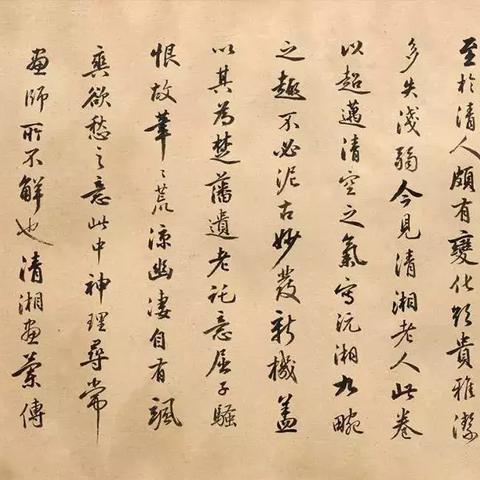 至於清人頗有變化貴雅潔
多失淺弱今見清湘老人此卷
以超邁清空之氣寫沅湘九畹
之趣不必泥古妙發新機蓋
以其為楚藩遺老託意屈子騷
恨故筆〻荒涼幽淒自有颯
爽欲愁之意此中神理尋常
畫師所不解也清湘畫蘭傳